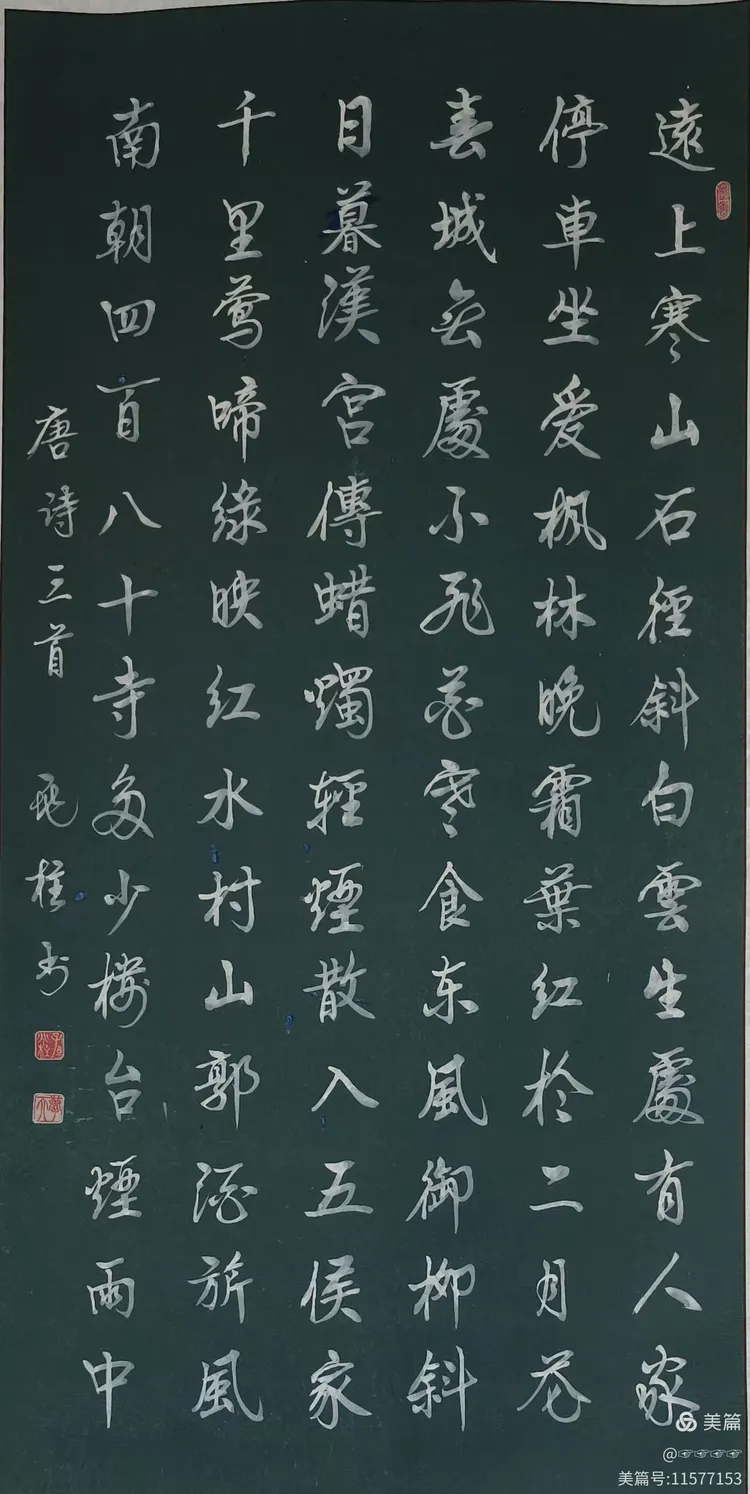 遠上寒山石徑斜白雲生處有人家
停車坐爱枫林晚霜葉红於二月花
春城無處不飛花寒食东風御柳斜
日暮漢宫傳蜡燭輕煙散入五侯家
千里莺啼綠映红水村山郭酒旂風
南朝四百八十寺多少楼台煙雨中
唐诗三首
桂书
美篇
@☞☞☞☞
美篇号:11577153